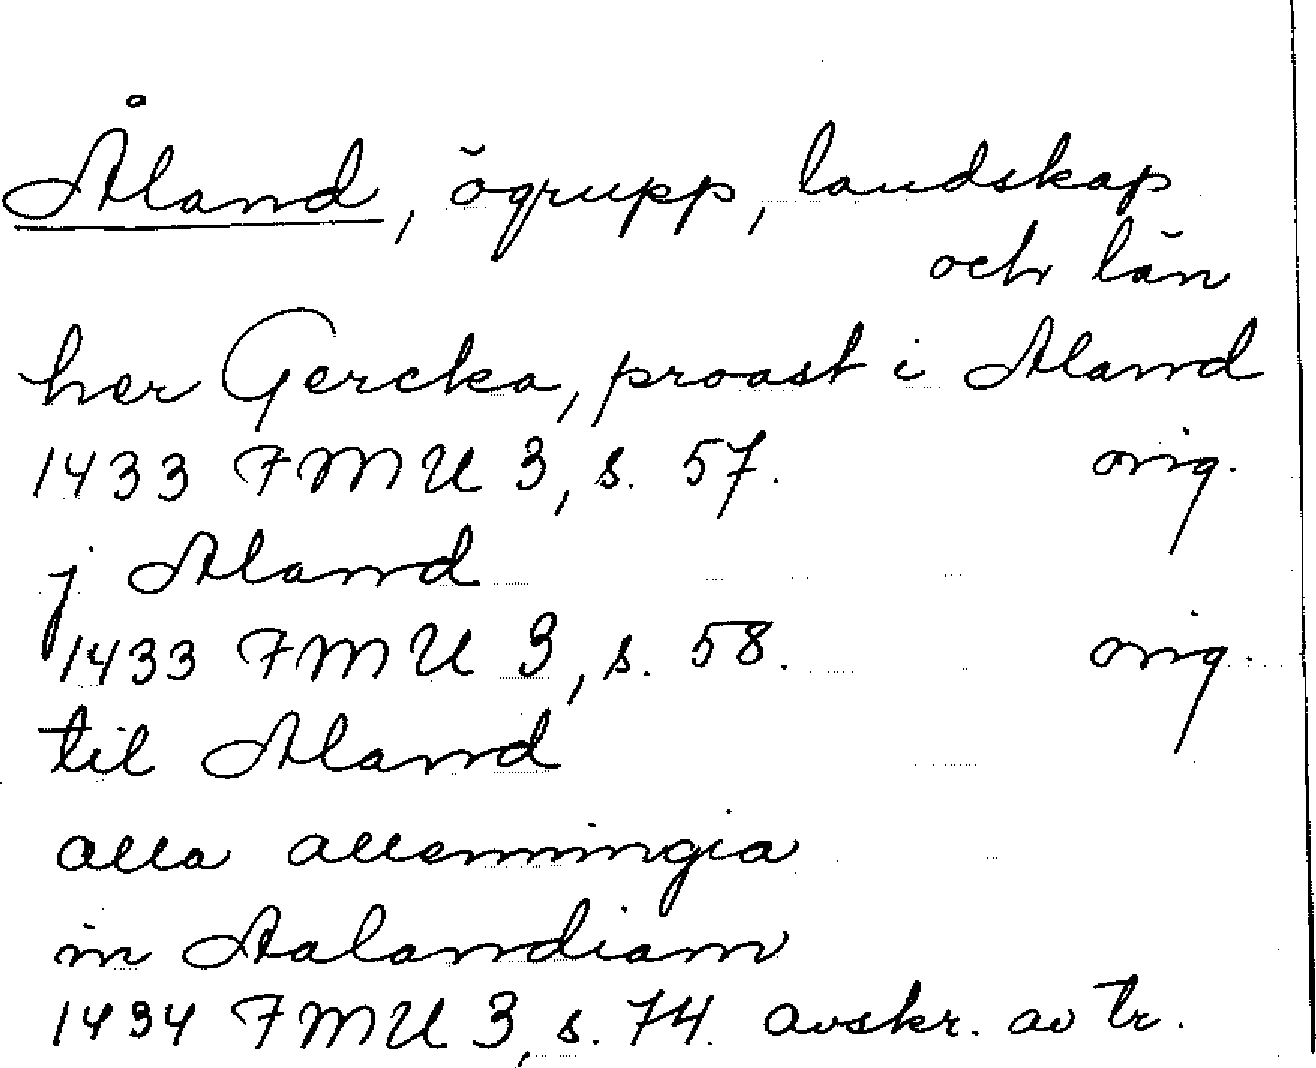 Åland, ögrupp, landskap
och län
her Gercka, proast i Aland
1433 FMU 3, s. 57. orig.
j Aland
1433 FMU 3, s. 58. orig.
til Aland
alla allenningia
in Aalandiam
1434 FMU 3, s. 74. avskr. av tr.